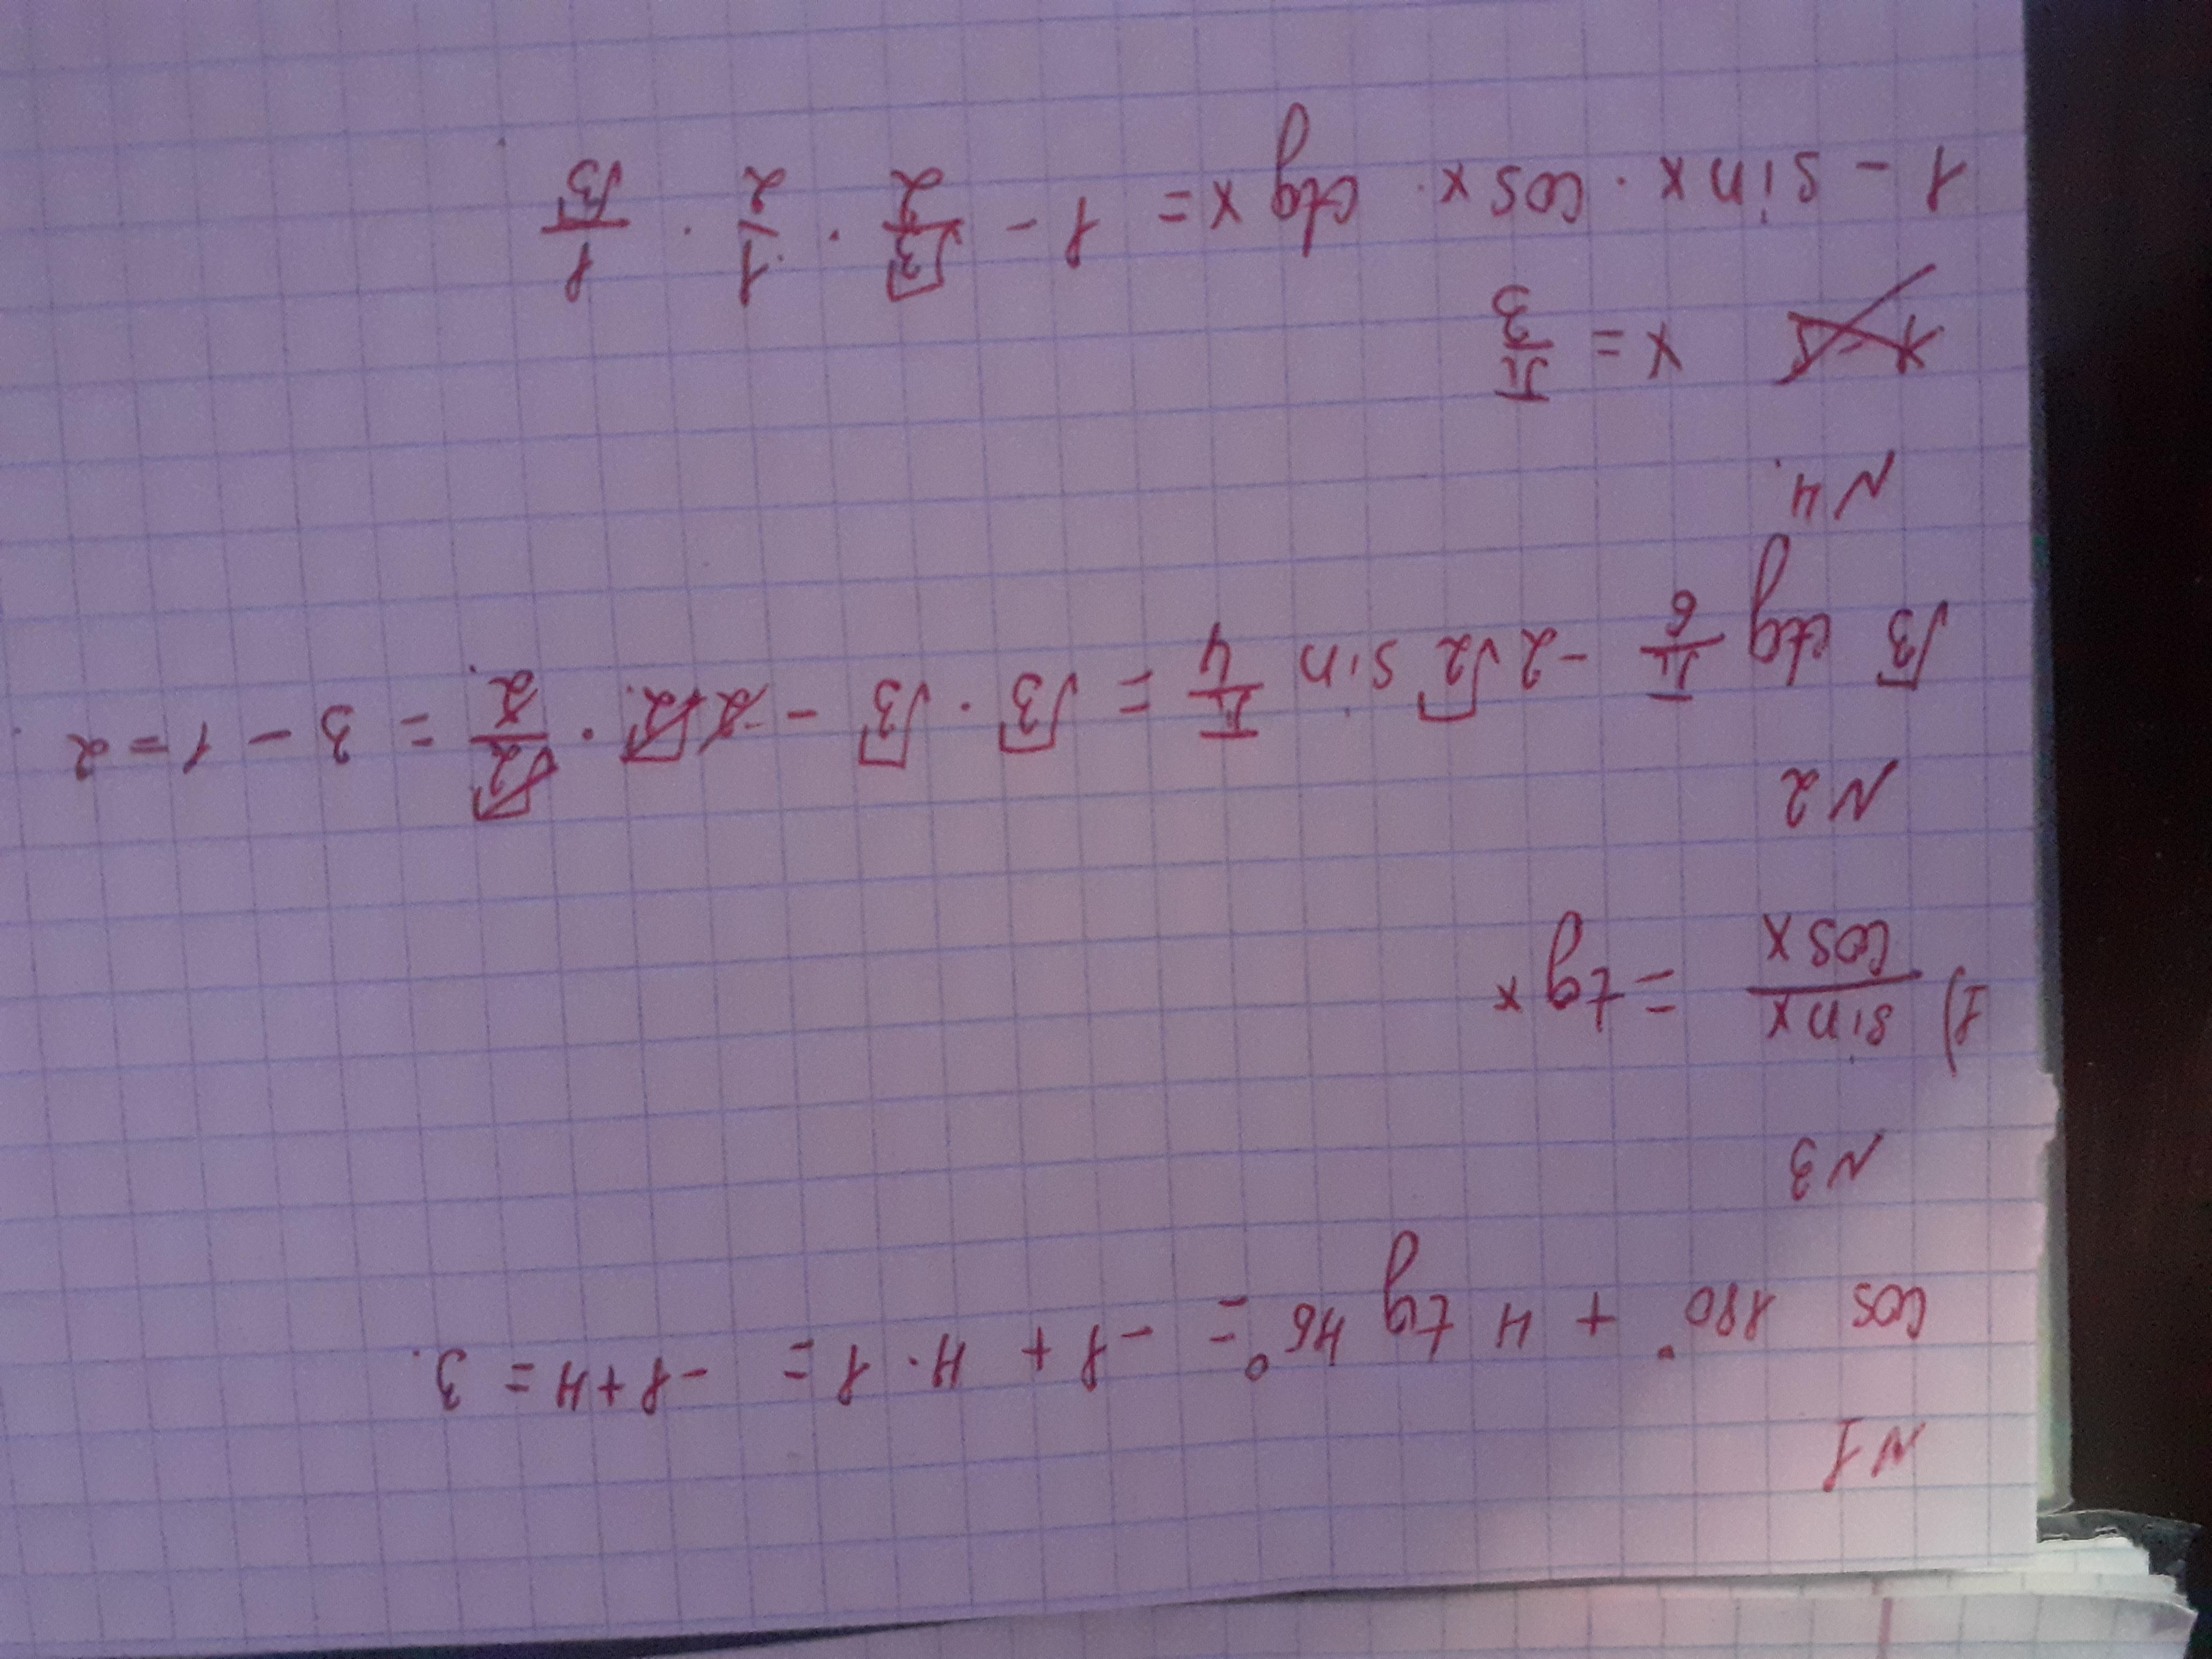 N1
cos 180° + 4 tg 45° = -1 + 4·1 = -1+4 = 3.
N3
1) sinx/cosx = tgx
N2
√3 ctg π/6 - 2√2 sin π/4 = √3 · √3 - 2√2 · √2/2 = 3 - 1 = 2
N4.
x = π/3
1 - sinx · cosx · ctg x = 1 - √3/2 · 1/2 · 1/√3